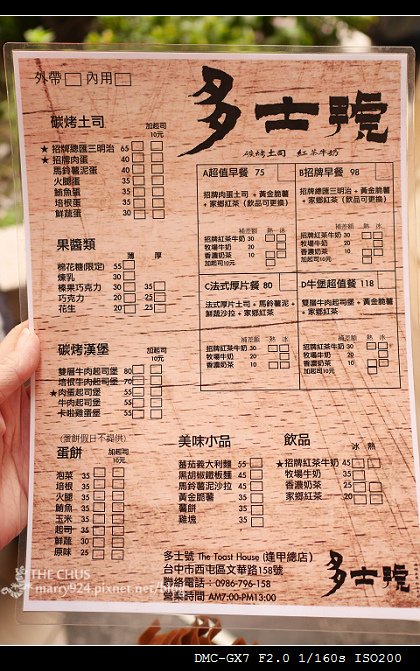 外帶 內用
多士號
碳烤土司 紅茶牛奶
碳烤土司 加起司10元
★ 招牌總匯三明治 65
★ 招牌肉蛋 40
馬鈴薯泥蛋 40
火腿蛋 35
鮪魚蛋 35
培根蛋 35
鮮蔬蛋 30
果醬類 薄 厚
棉花糖(限定) 55
煉乳 30
榛果巧克力 30 35
巧克力 20 25
花生 20 25
碳烤漢堡 加起司10元
雙層牛肉起司堡 80
培根牛肉起司堡 70
★ 肉蛋起司堡 55
牛肉起司堡 55
卡啦雞蛋堡 55
(蛋餅假日不提供)
蛋餅 加起司10元
泡菜 35
培根 35
火腿 35
鮪魚 35
玉米 35
起司 35
鮮蔬 30
原味 25
A超值早餐 75
招牌肉蛋土司 + 黃金脆薯
+ 家鄉紅茶 (飲品可更換)
補差額 熱 冰
招牌紅茶牛奶 30
牧場牛奶 20
香濃奶茶 10
加起司10元
B招牌早餐 98
招牌總匯三明治 + 黃金脆薯
+ 家鄉紅茶 (飲品可更換)
補差額 熱 冰
招牌紅茶牛奶 30
牧場牛奶 20
香濃奶茶 10
加起司10元
C法式早餐 80
法式厚片土司 + 馬鈴薯泥 +
鮮蔬沙拉 + 家鄉紅茶
補差額 熱 冰
招牌紅茶牛奶 30
牧場牛奶 20
香濃奶茶 10
D牛堡超值餐 118
雙層牛肉起司堡 + 黃金脆薯
+ 家鄉紅茶
補差額 熱 冰
招牌紅茶牛奶 30
牧場牛奶 20
香濃奶茶 10
加起司10元
美味小品
蕃茄義大利麵 55
黑胡椒鐵板麵 45
馬鈴薯泥沙拉 45
黃金脆薯 35
薯餅
雞塊 35
飲品 冰 熱
★招牌紅茶牛奶 45
牧場牛奶 35
香濃奶茶 25
家鄉紅茶 20
多士號 The Toast House (逢甲總店)
台中市西屯區文華路158號
聯絡電話：0986-796-158
營業時間 AM7:00-PM13:00
多士號
THE CHUS
marry924.pixnet.net/blog
DMC-GX7 F2.0 1/160s ISO200